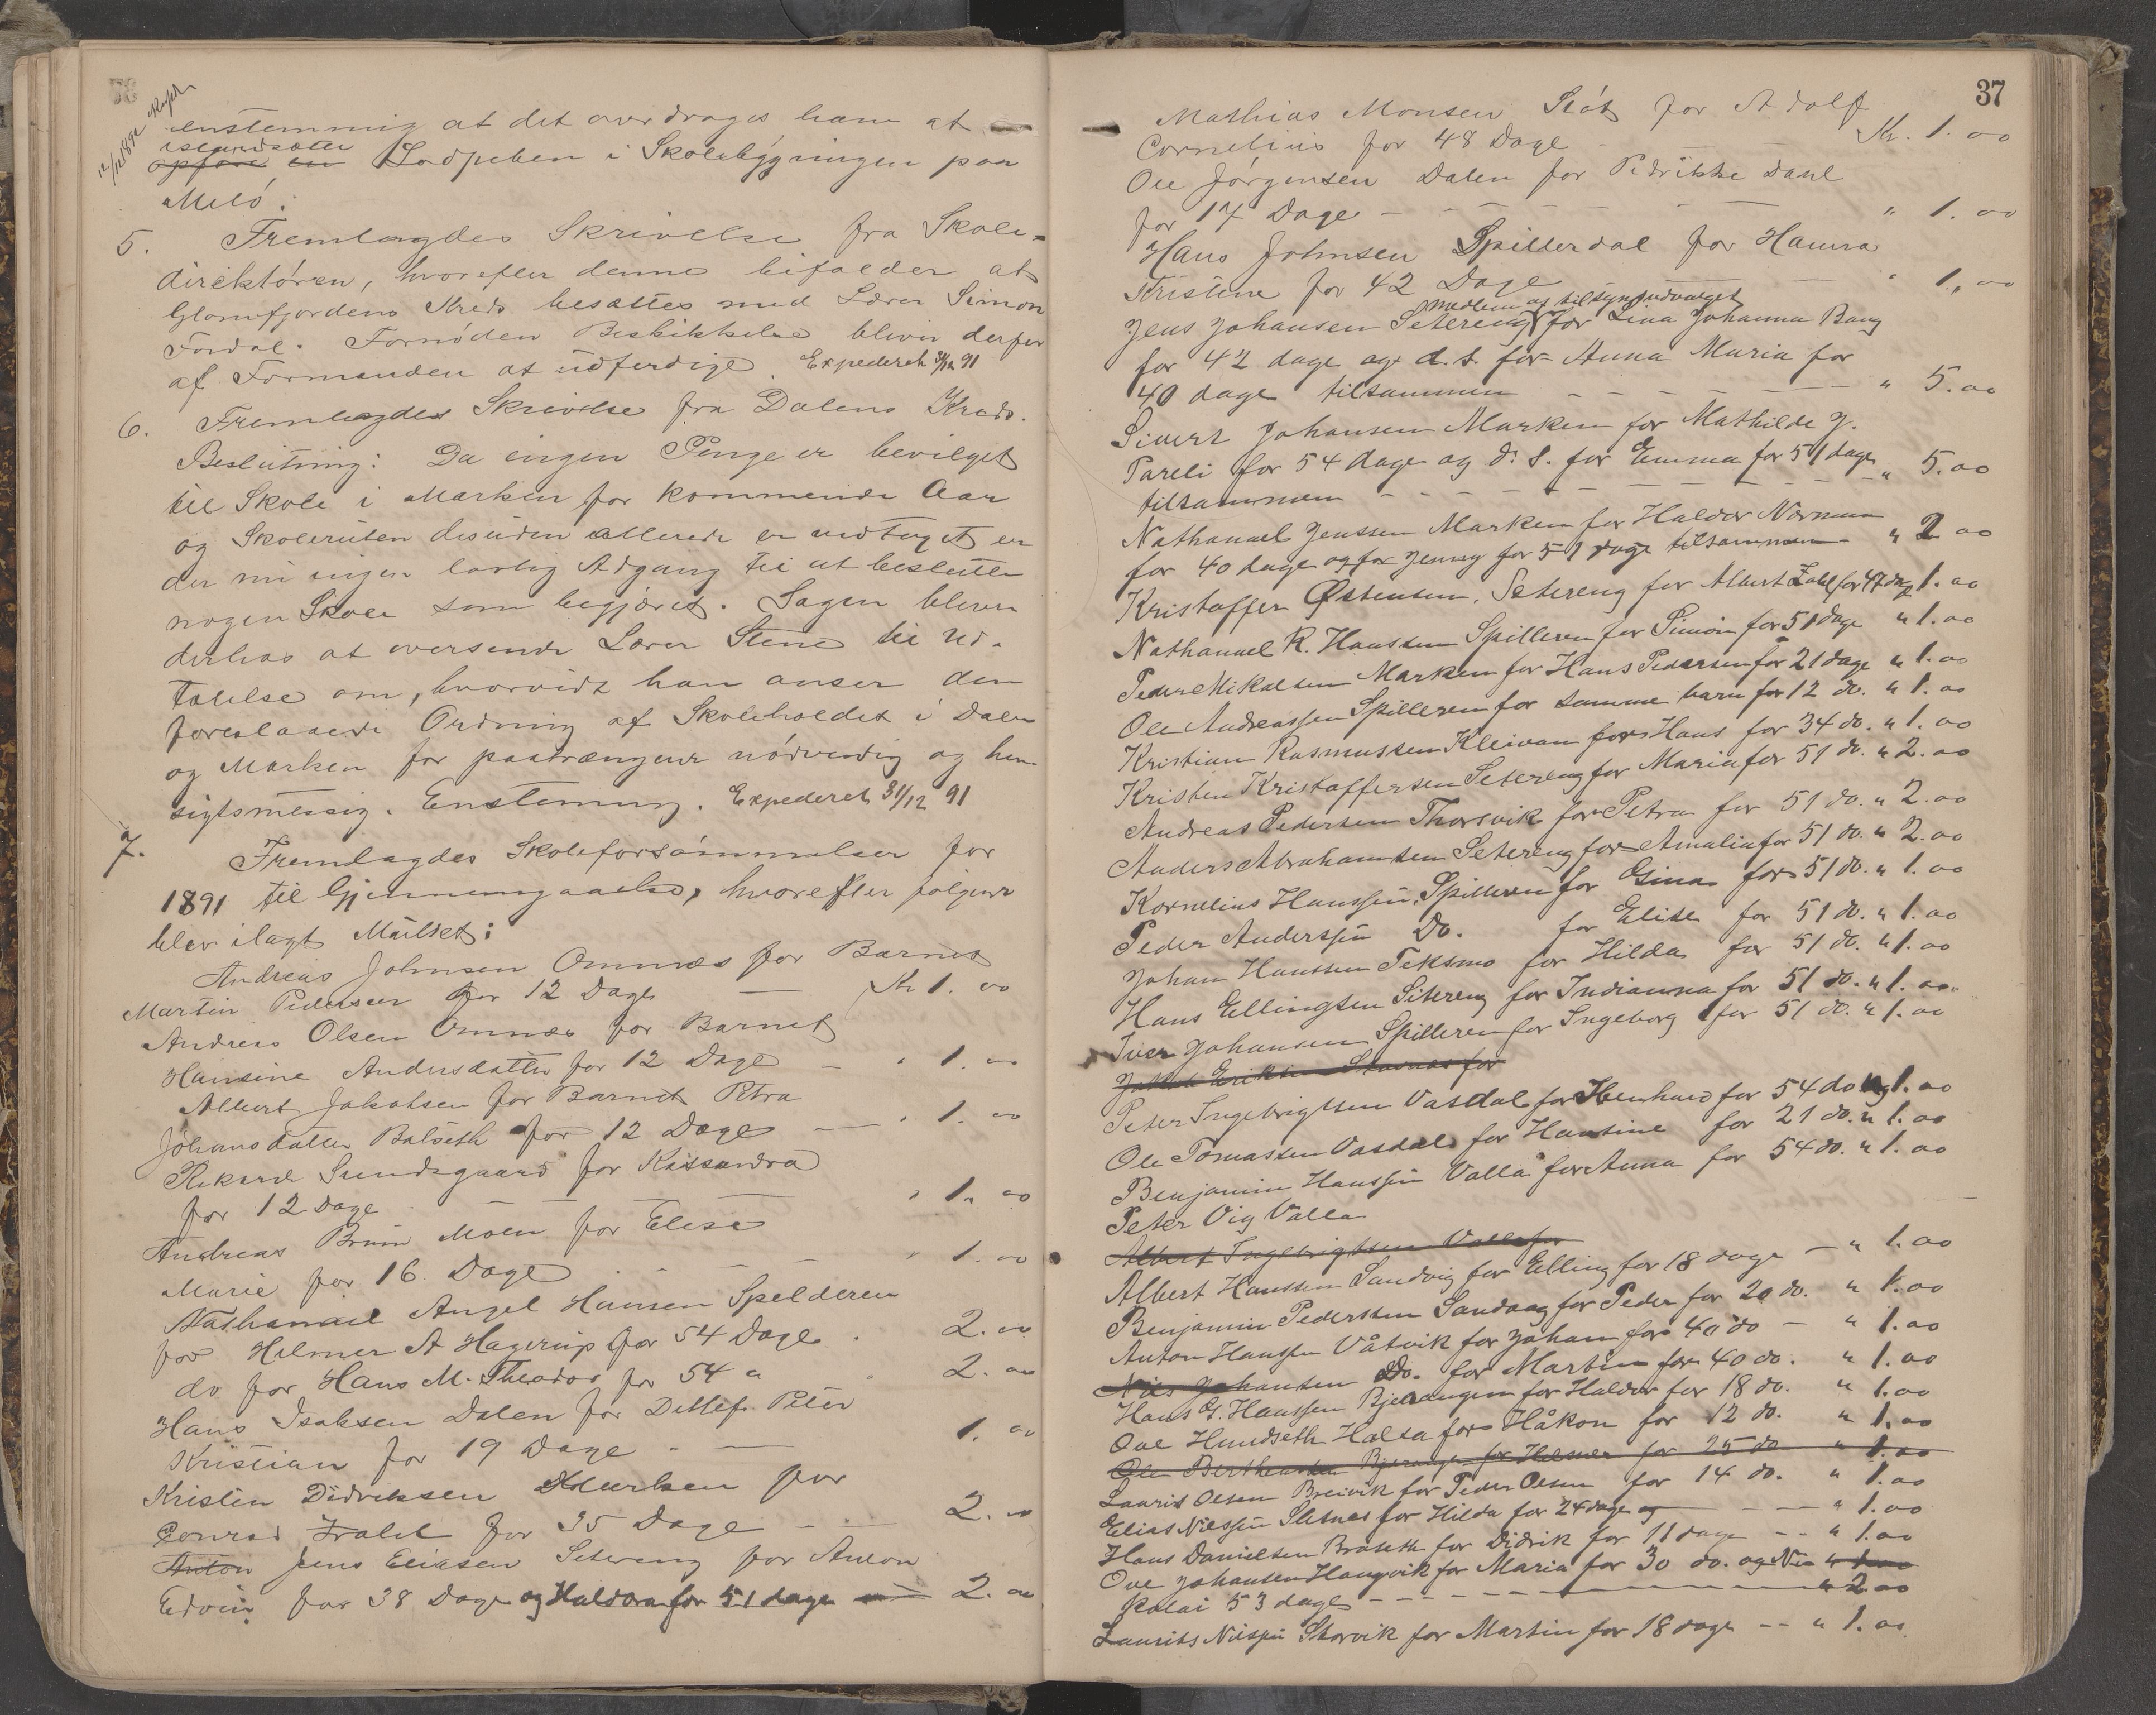 enstemmig at det overdrages ham at
istandsætte
opføre en Lodpeben i Skolebygningen paa
Meló.
5. Fremlagdes Skrivelse fra Skole-
direktøren, hvorefter denne bifalder at
Glomfjordens Kreds besættes med Lærer Simon
Fordal. Fornøden Beskikkelse bliver derfor
af Formanden at udferdige. Expederet 31/12 91
6. Fremlagdes Skrivelse fra Dalens Kreds.
Beslutning: Da ingen Penge er bevilget
til Skole i Marken for kommende Aar
og Skoleruten desuden allerede er vedtaget er
der nu ingen lovlig Adgang til at beslutte
nogen Skole som begjæret. Sagen bliver
derhos at oversende Lærer Stene til Ud-
talelse om, hvorvidt han anser den
foreslaaede Ordning af Skoleholdet i Dalen
og Marken for paatrængende nødvendig og hen-
sigtsmessig. Enstemmig. Expederet 31/12 91
7. Fremlagdes Skoleforsømmelser for
1891 til Gjennemgaaelse, hvorefter følgende
blev ilagt Mulket:
Andreas Johnsen Omnæs for Barnet
Martin Pedersen for 12 Dage — Kr 1.00
Andreas Olsen Omnæs for Barnet
Hansine Andersdatter for 12 Dage - " 1.00
Albert Jakobsen for Barnet Petra
Johansdatter Balseth for 12 Dage — " 1.00
Rikard Sundsgaard for Kassandra
for 12 Dage - — — " 1.00
Andreas Bruun Moen for Elise
Marie for 16 Dage - - " 1.00
Nathanael Angel Hansen Spilderen
for Hilmer A Hagerup for 54 Dage . 2.00
do for Hans M. Theodor for 54 " " 2.00
Hans Isaksen Dalen for Detlef Peter
Kristian for 19 Dage - — 1.00
Kristen Didriksen Marken for
Conrad for 35 Dage - - 2.00
Anton Jens Eliasen Setereng for Anton
Edvin for 38 Dage og Haldora for 51 dage — 2.00
37
Mathias Monsen Støt for Adolf
Cornelius for 48 Dage - - Kr. 1.00
Ole Jørgensen Dalen for Pedrikke Dahl
for 17 Dage - - - - - " 1.00
Hans Johnsen Spilderdal for Hanna
Kristine for 42 Dage - " 1.00
medlem af tilsynsudvalget
Jens Johansen Setereng for Lina Johanna Bang
for 42 dage og d. s. for Anna Maria for
40 dage tilsammen - - - - " 5.00
Sivert Johansen Marken for Mathilde J.
Pareli for 54 dage og d. s. for Emma for 51 dage
tilsammen - - - - - - " 5.00
Nathanael Jenssen Marken for Haldor Norman
for 40 dage og for Jenny for 51 dage tilsammen " 2.00
Kristoffer Østensen, Setereng for Albert Zahl for 47 dage 1.00
Nathanael R. Hanssen Spilleren for Simon for 51 dage " 1.00
Peder Mikalsen Marken for Hans Pedersen for 21 dage " 1.00
Ole Andreassen Spilleren for samme barn for 12 do. " 1.00
Kristian Rasmussen Kleivan for Hans for 34 do. " 1.00
Kristen Kristoffersen Setereng for Maria for 51 do. " 2.00
Andreas Pedersen Thorsvik for Petra for 51 do. " 2.00
Anders Abrahamsen Setereng for Amalia for 51 do. " 2.00
Kornelius Hanssen, Spilleren for Gina for 51 do. " 1.00
Peder Anderssen Do. for Elise for 51 do. " 1.00
Johan Hanssen Teksmo for Hilda for 51 do. " 1.00
Hans Ellingsen Setereng for Indianna for 51 do. " 1.00
Iver Johansen Spilleren for Ingeborg for 51 do. " 1.00
Jakob Eriksen Stavnæs for
Peter Ingebrigtsen Vasdal for Henhard for 54 do " 1.00
Ole Tomassen Vasdal for Hansine for 21 do. " 1.00
Benjamin Hanssen Valla for Anna for 54 do. " 1.00
Peter Vig Valla
Albert Ingebrigtsen Valla for
Albert Hanssen Sandvig for Elling for 18 dage — " 1.00
Benjamin Pedersen Sandaag for Peder for 20 do. " 1.00
Anton Hanssen Våtvik for Johan for 40 do — " 1.00
Nils Johansen Do. for Martin for 40 do. " 1.00
Hans G. Hanssen Bjerangen for Haldor for 18 do. " 1.00
Ove Hundseth Halsa for Håkon for 12 do. " 1.00
Ole Bertheussen Bjerangen for Hilmer for 25 do " 1.00
Laurits Olsen Breivik for Peder Olsen for 14 do. " 1.00
Elias Nilssen Sletnes for Hilda for 24 dage og — — " 1.00
Hans Danielsen Braseth for Didrik for 11 dage - - " 1.00
Ove Johansen Haugvik for Maria for 30 do. og Ni- " 1.00
kolai 53 dage - - - - " 2.00
Laurits Nilssen Storvik for Martin for 18 dage - - " 1.00